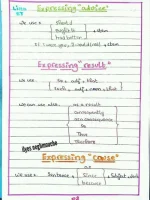 Expressing "advice"
We use:
should
ought to
had better
+ stem
If I were you, I would (not) + stem
Expressing "result"
We use :
so + adj + that
such + adj + noun + that
We can use also:
as a result
consequently
as a consequence
Thus
Therefore
Expressing "cause"
We use
Sentence +
as
since
because
+ Subject + verb